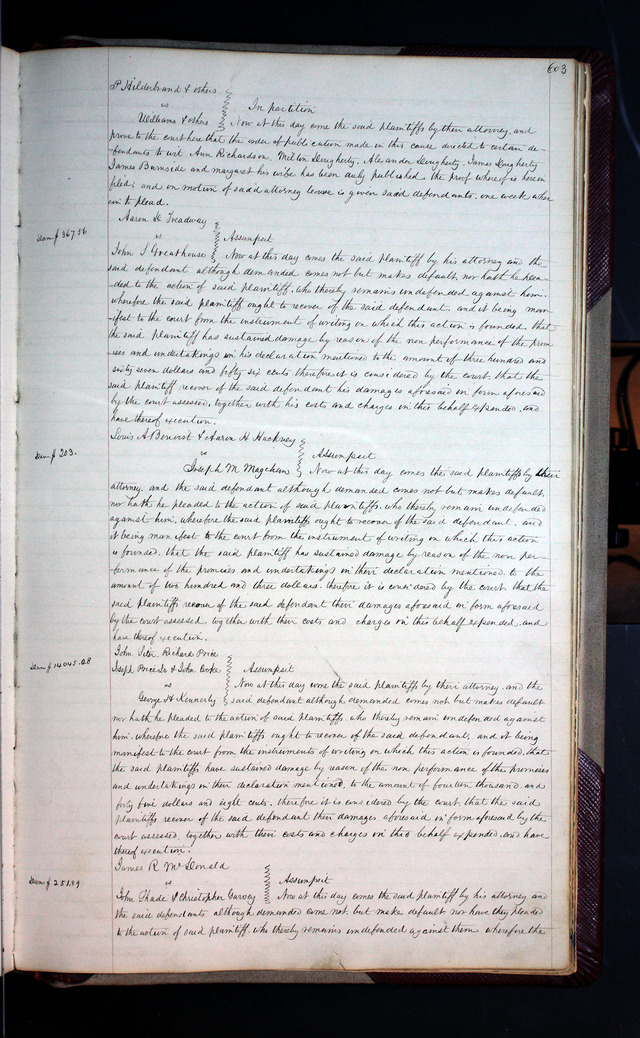 603
P Hilderbrand & others
vs
In partition
Williams & others Now at this day come the said plaintiffs by their attorney, and
prove to the court here that the order of publication made in this cause directed to certain de-
fendants to wit Ann Richardson, Milton Dougherty, Alexander Dougherty, James Dougherty
James Burnside and margaret his wife has been duly published, the proof whereof is herein
filed; and on motion of said attorney leave is given said defendants, one week where
in to plead.
Aaron D. Treadway
Dam $367.56
vs
Assumpsit
John S Greathouse Now at this day comes the said plaintiff by his attorney and the
said defendant although demanded comes not but makes default, nor hath he plea-
ded to the action of said plaintiff, who thereby remains undefended against him:
wherefore the said plaintiff ought to recover of the said defendant, and it being man-
ifest to the court from the instrument of writing on which this action is founded, that
the said plaintiff has sustained damage by reason of the non performance of the prom-
ises and undertakings in his declaration mentioned to the amount of three hundred and
sixty seven dollars and fifty six cents, therefore it is considered by the court, that the
said plaintiff recover of the said defendant his damages aforesaid in form aforesaid
by the court assessed, together with his costs and charges in this behalf expended, and
have thereof execution.
Louis A Benoist & Aaron H Hackney
Dam $203.
vs
Assumpsit
Joseph M. Magehan Now at this day comes the said plaintiffs by their
attorney, and the said defendant although demanded comes not but makes default,
nor hath he pleaded to the action of said plaintiffs, who thereby remain undefended
against him, wherefore the said plaintiffs ought to recover of the said defendant, and
it being manifest to the court from the instrument of writing on which this action
is founded, that the said plaintiff has sustained damage by reason of the non per-
formance of the promises and undertakings in their declaration mentioned to the
amount of two hundred and three dollars, therefore it is considered by the court, that the
said plaintiffs recover of the said defendant their damages aforesaid in form aforesaid
by the court assessed, together with their costs and charges in this behalf expended, and
have thereof execution.
John Siter, Richard Price
Dam $14045.08
Joseph Price Jr & John Cooke
Assumpsit
vs
Now at this day come the said plaintiffs by their attorney, and the
George H Kennerly said defendant although demanded comes not but makes default
nor hath he pleaded to the action of said plaintiffs, who thereby remain undefended against
him: wherefore the said plaintiffs ought to recover of the said defendant, and it being
manifest to the court from the instruments of writing on which this action is founded, that
the said plaintiffs have sustained damage by reason of the non performance of the promises
and undertakings in their declaration mentioned, to the amount of fourteen thousand and
forty five dollars and eight cents, therefore it is considered by the court, that the said
plaintiffs recover of the said defendant their damages aforesaid in form aforesaid by the
court assessed, together with their costs and charges in this behalf expended, and have
thereof execution.
James R McDonald
Dam $251.89
vs
Assumpsit
John Thade & Christopher Garvey Now at this day comes the said plaintiff by his attorney and
the said defendants although demanded come not, but make default nor have they pleaded
to the action of said plaintiff, who thereby remains undefended against them wherefore the